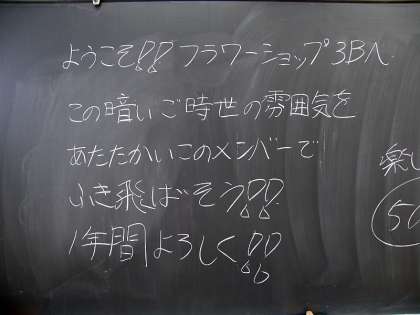 ようこそ!! フラワーショップ3Bへ
この暗いご時世の雰囲気を
あたたかいこのメンバーで
ふき飛ばそう!!
1年間よろしく!!
楽し
50